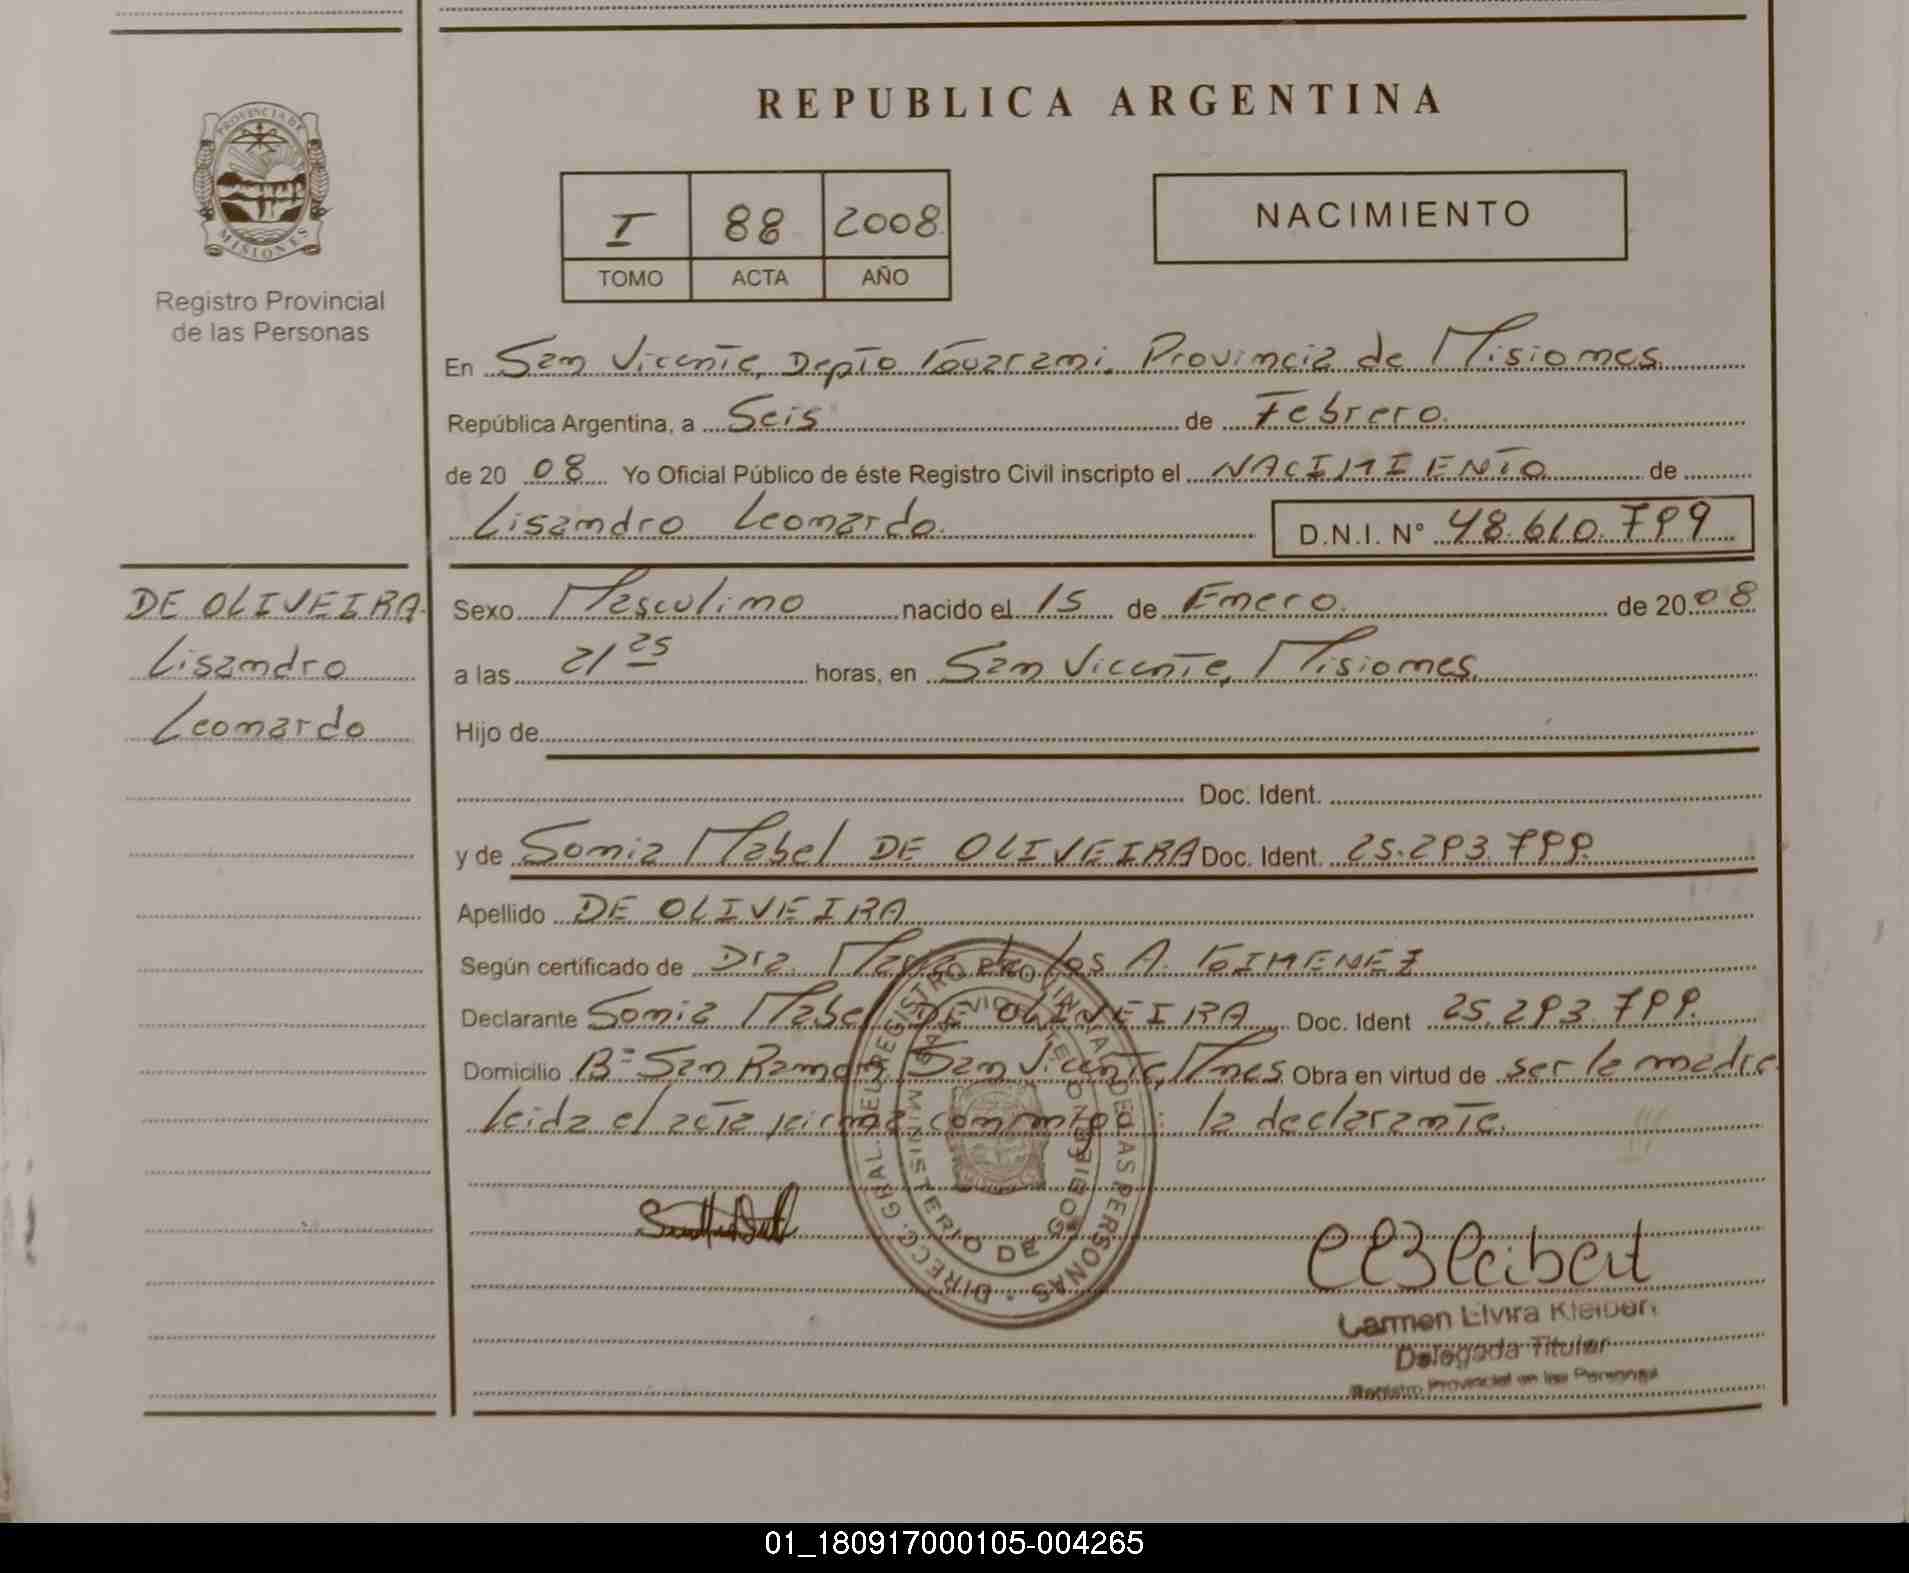 REPUBLICA ARGENTINA
PROVINCIA DE
MISIONES
Registro Provincial
de las Personas
I 88 2008
TOMO ACTA AÑO
NACIMIENTO
En San Vicente, Depto Guarani, Provincia de Misiones
República Argentina, a Seis de Febrero.
de 20 08 Yo Oficial Público de éste Registro Civil inscripto el NACIMIENTO de
Lisandro Leonardo. D.N.I. N° 48.610.799
DE OLIVEIRA
Lisandro
Leonardo
Sexo Masculino nacido el 15 de Enero. de 20 08
a las 21 25 horas, en San Vicente, Misiones
Hijo de
Doc. Ident.
y de Sonia Mabel DE OLIVEIRA Doc. Ident. 25.293.799
Apellido DE OLIVEIRA
Según certificado de Dra. Maria de los A. GIMENEZ
Declarante Sonia Mabel DE OLIVEIRA Doc. Ident 25.293.799.
Domicilio B° San Ramon San Vicente, Mnes Obra en virtud de ser la madre
leida el acta firma conmigo: la declarante.
DIRECC. GRAL. DEL REGISTRO PROVINCIAL DE LAS PERSONAS
MINISTERIO DE GOBIERNO
CEKleibert
Carmen Elvira Kleibert
Delegada Titular
Registro Provincial de las Personas
01_180917000105-004265